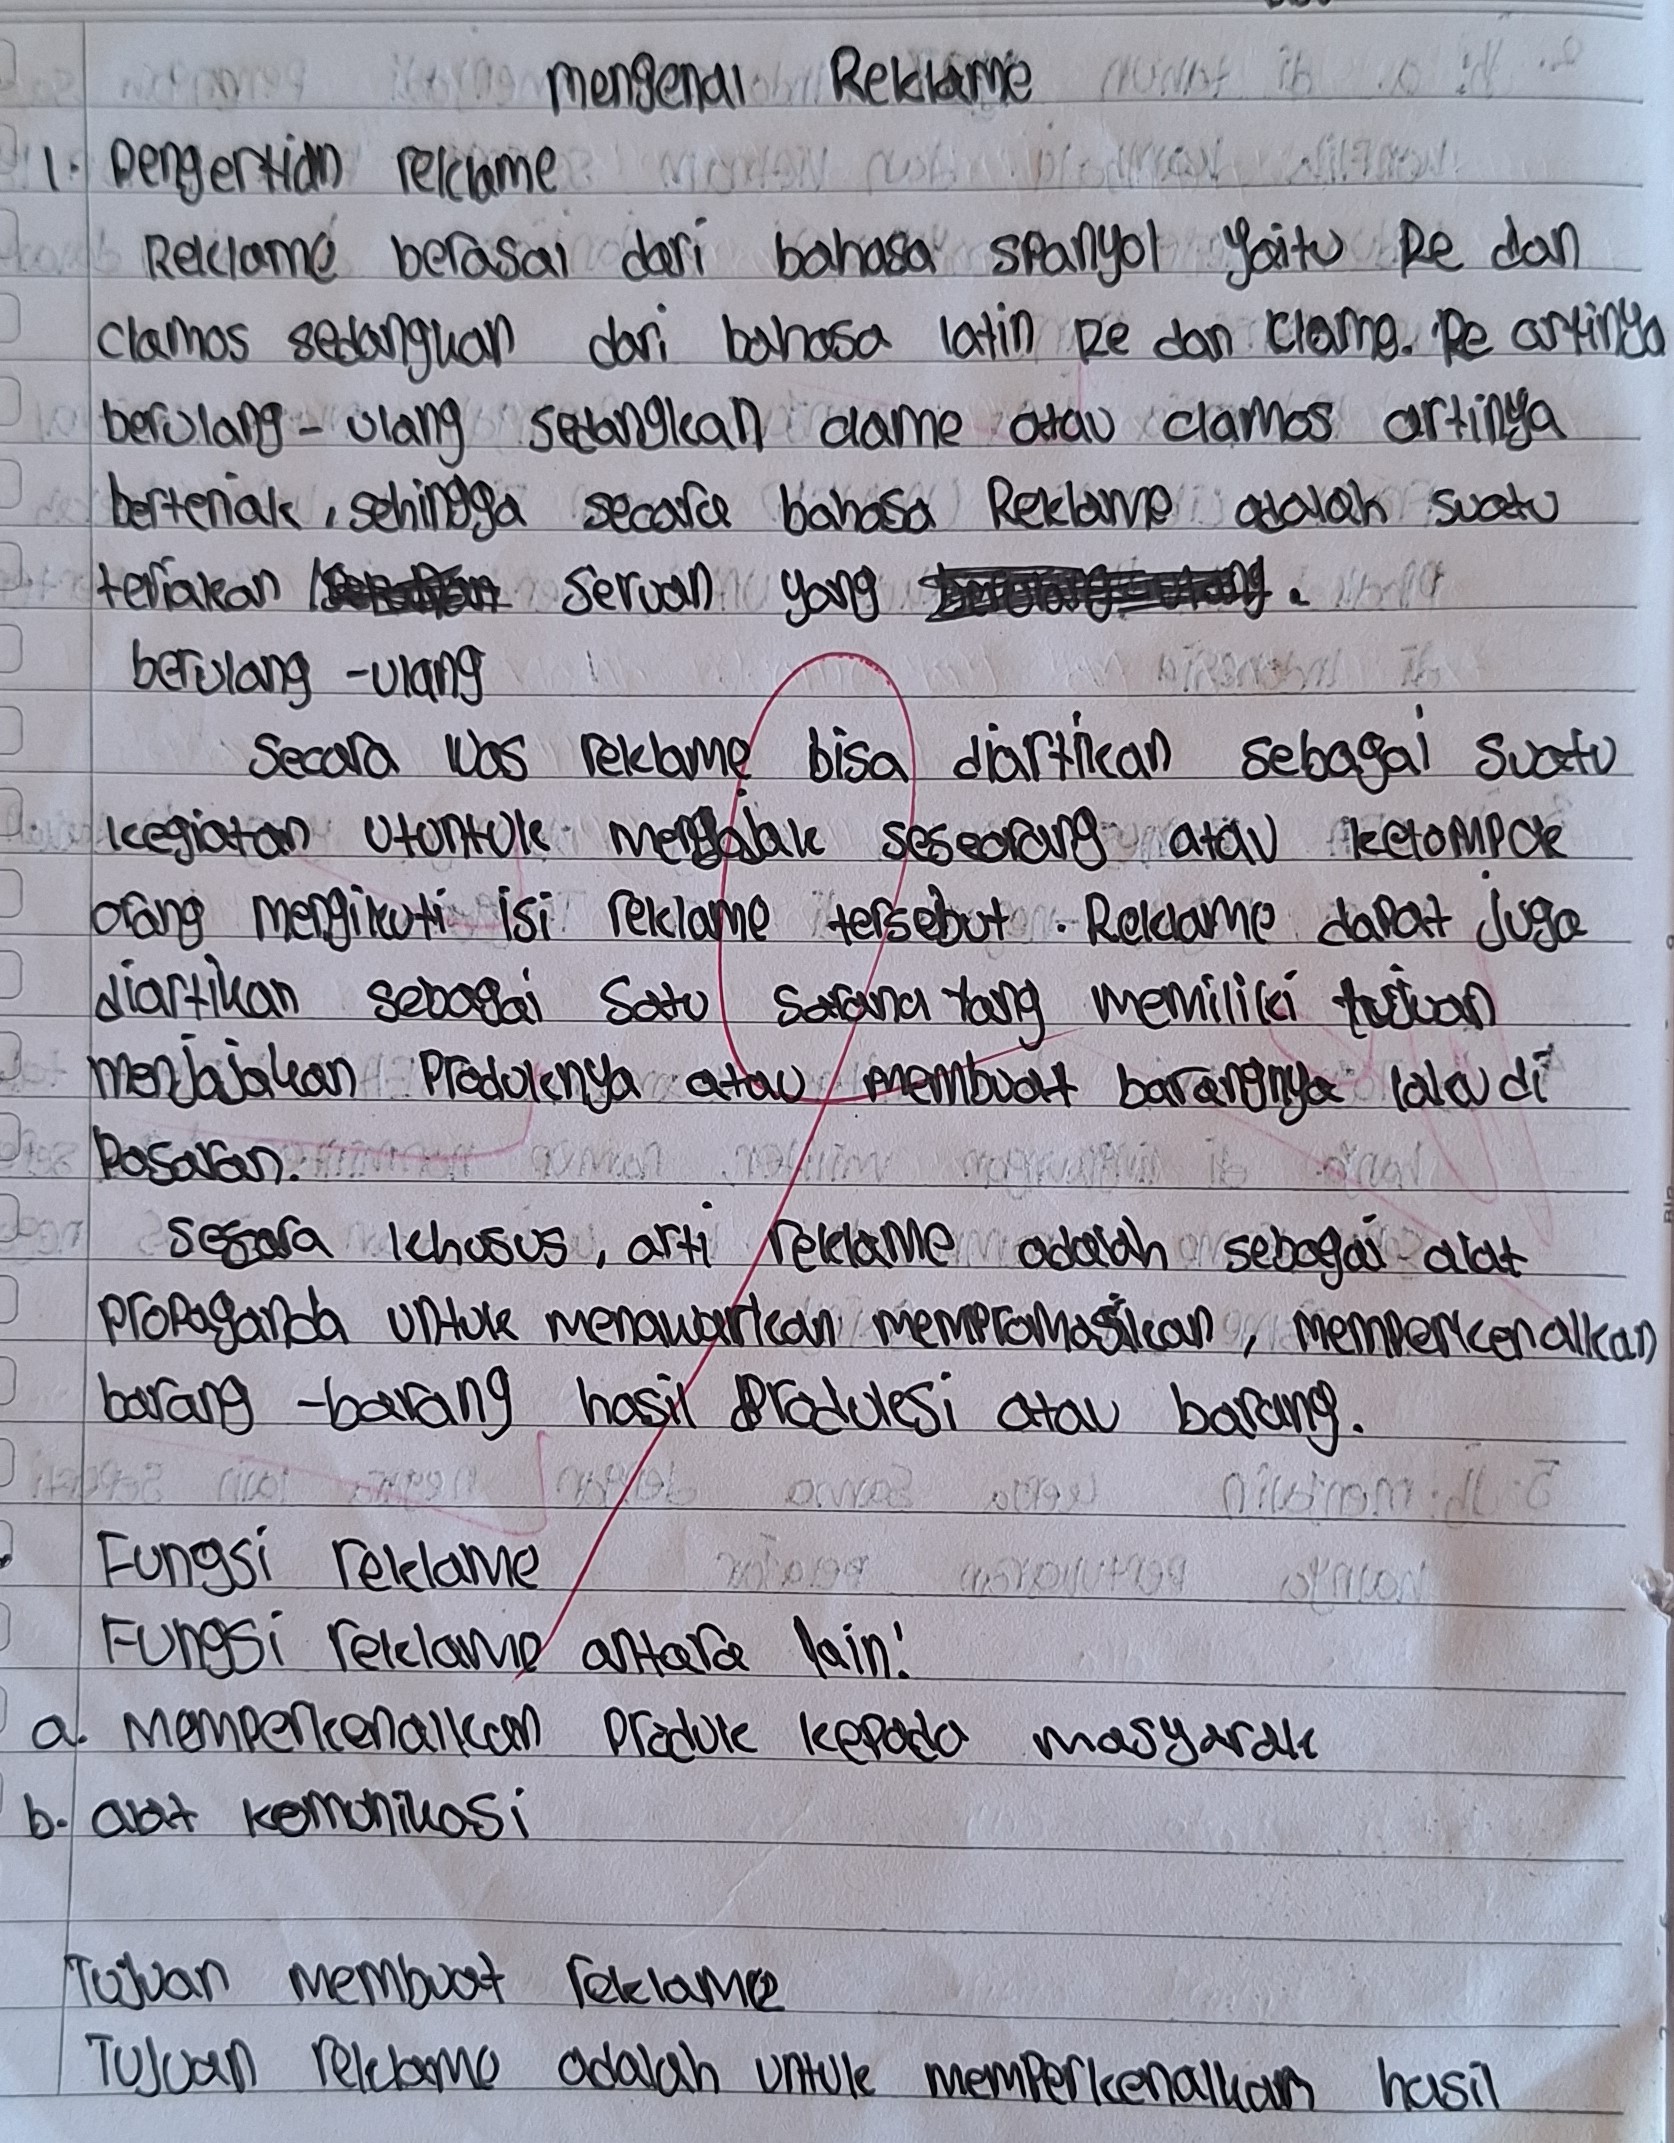 mengenal Reklame
1. Pengertian reklame
Reklame berasal dari bahasa spanyol yaitu Re dan
clamos sedangkan dari bahasa latin Re dan Clame. Re artinya
berulang - ulang sedangkan clame atau clamos artinya
berteriak, sehingga secara bahasa Reklame adalah suatu
teriakan seruan yang .
berulang - ulang
Secara luas reklame bisa diartikan sebagai suatu
kegiatan utuntuk mengajak seseorang atau kelompok
orang mengikuti isi reklame tersebut. Reklame dapat juga
diartikan sebagai satu sarana yang memiliki tujuan
menjajakan Produknya atau membuat barangnya laku di
Pasaran.
Secara khusus, arti reklame adalah sebagai alat
propaganda untuk menawarkan mempromosikan, memperkenalkan
barang - barang hasil Produksi atau barang.
Fungsi reklame
Fungsi reklame antara lain:
a. Memperkenalkan Produk kepada masyarak
b. alat komunikasi
Tujuan membuat reklame
Tujuan reklame adalah untuk memperkenalkan hasil